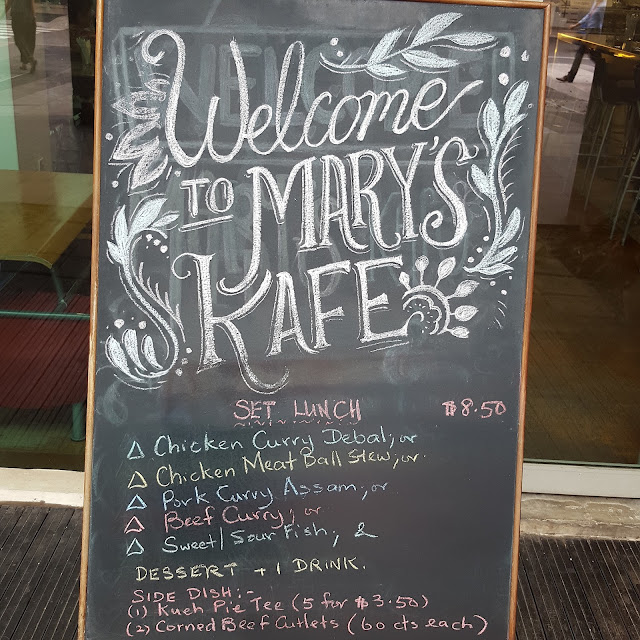 Welcome
TO MARY'S
KAFE
SET LUNCH $8.50
Chicken Curry Debal, or
Chicken Meat Ball Stew, or
Pork Curry Assam, or
Beef Curry, or
Sweet/Sour Fish, &
DESSERT + 1 DRINK.
SIDE DISH:-
(1) Kueh Pie Tee (5 for $3.50)
(2) Corned Beef Cutlets (60 cts each)